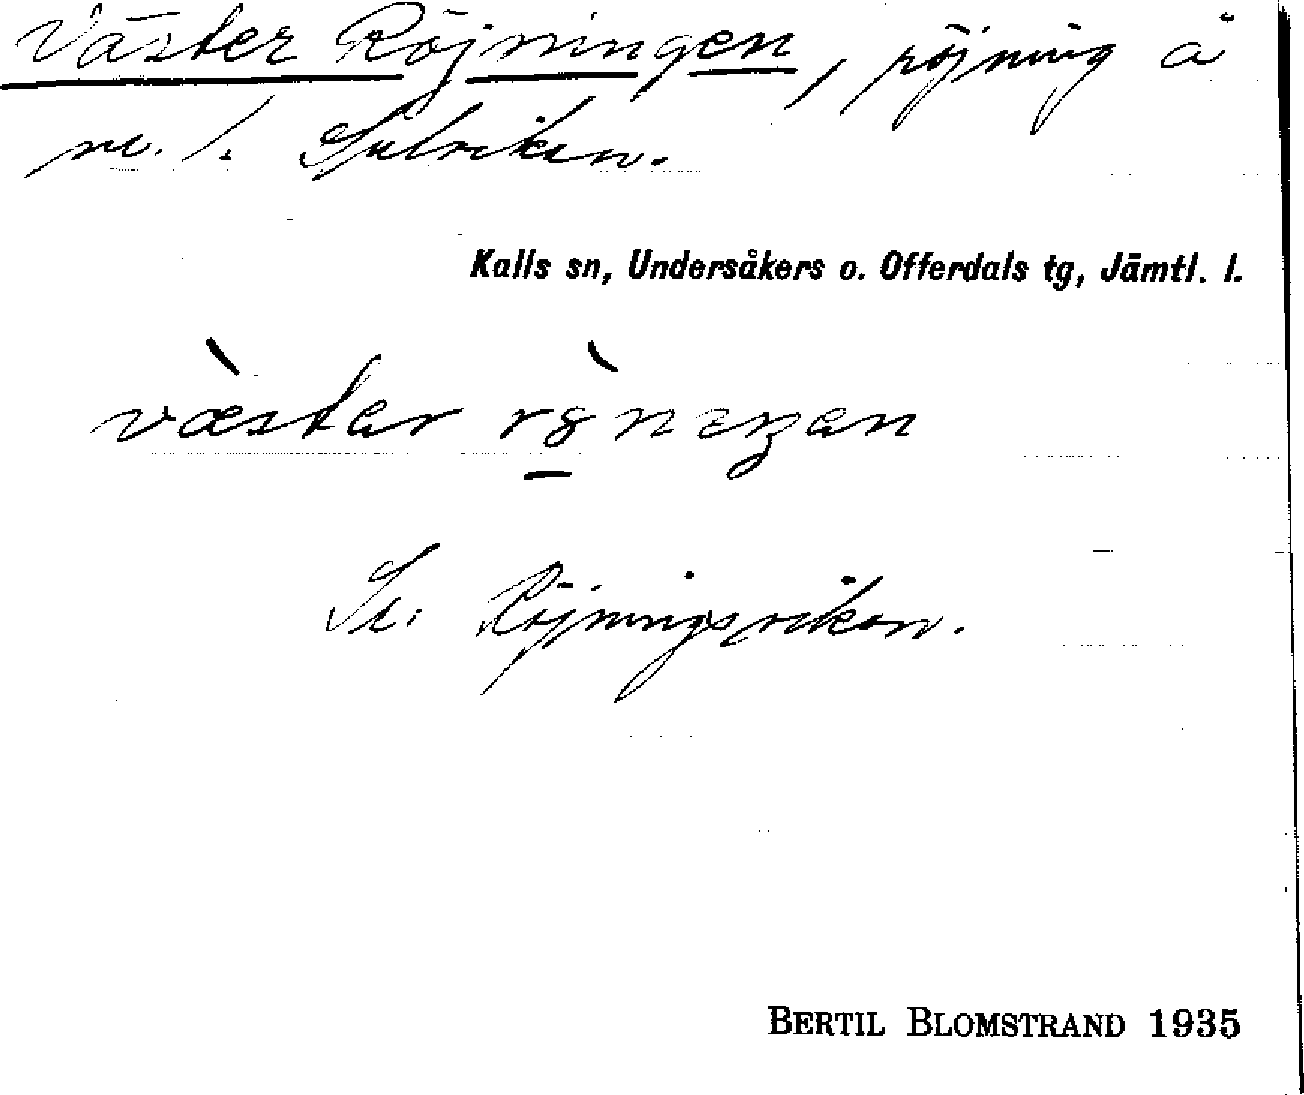 Väster Röjningen, röjning å
Sulviken.
Kalls sn, Undersåkers o. Offerdals tg, Jämtl. l.
Se: Röjningsviken.
BERTIL BLOMSTRAND 1935